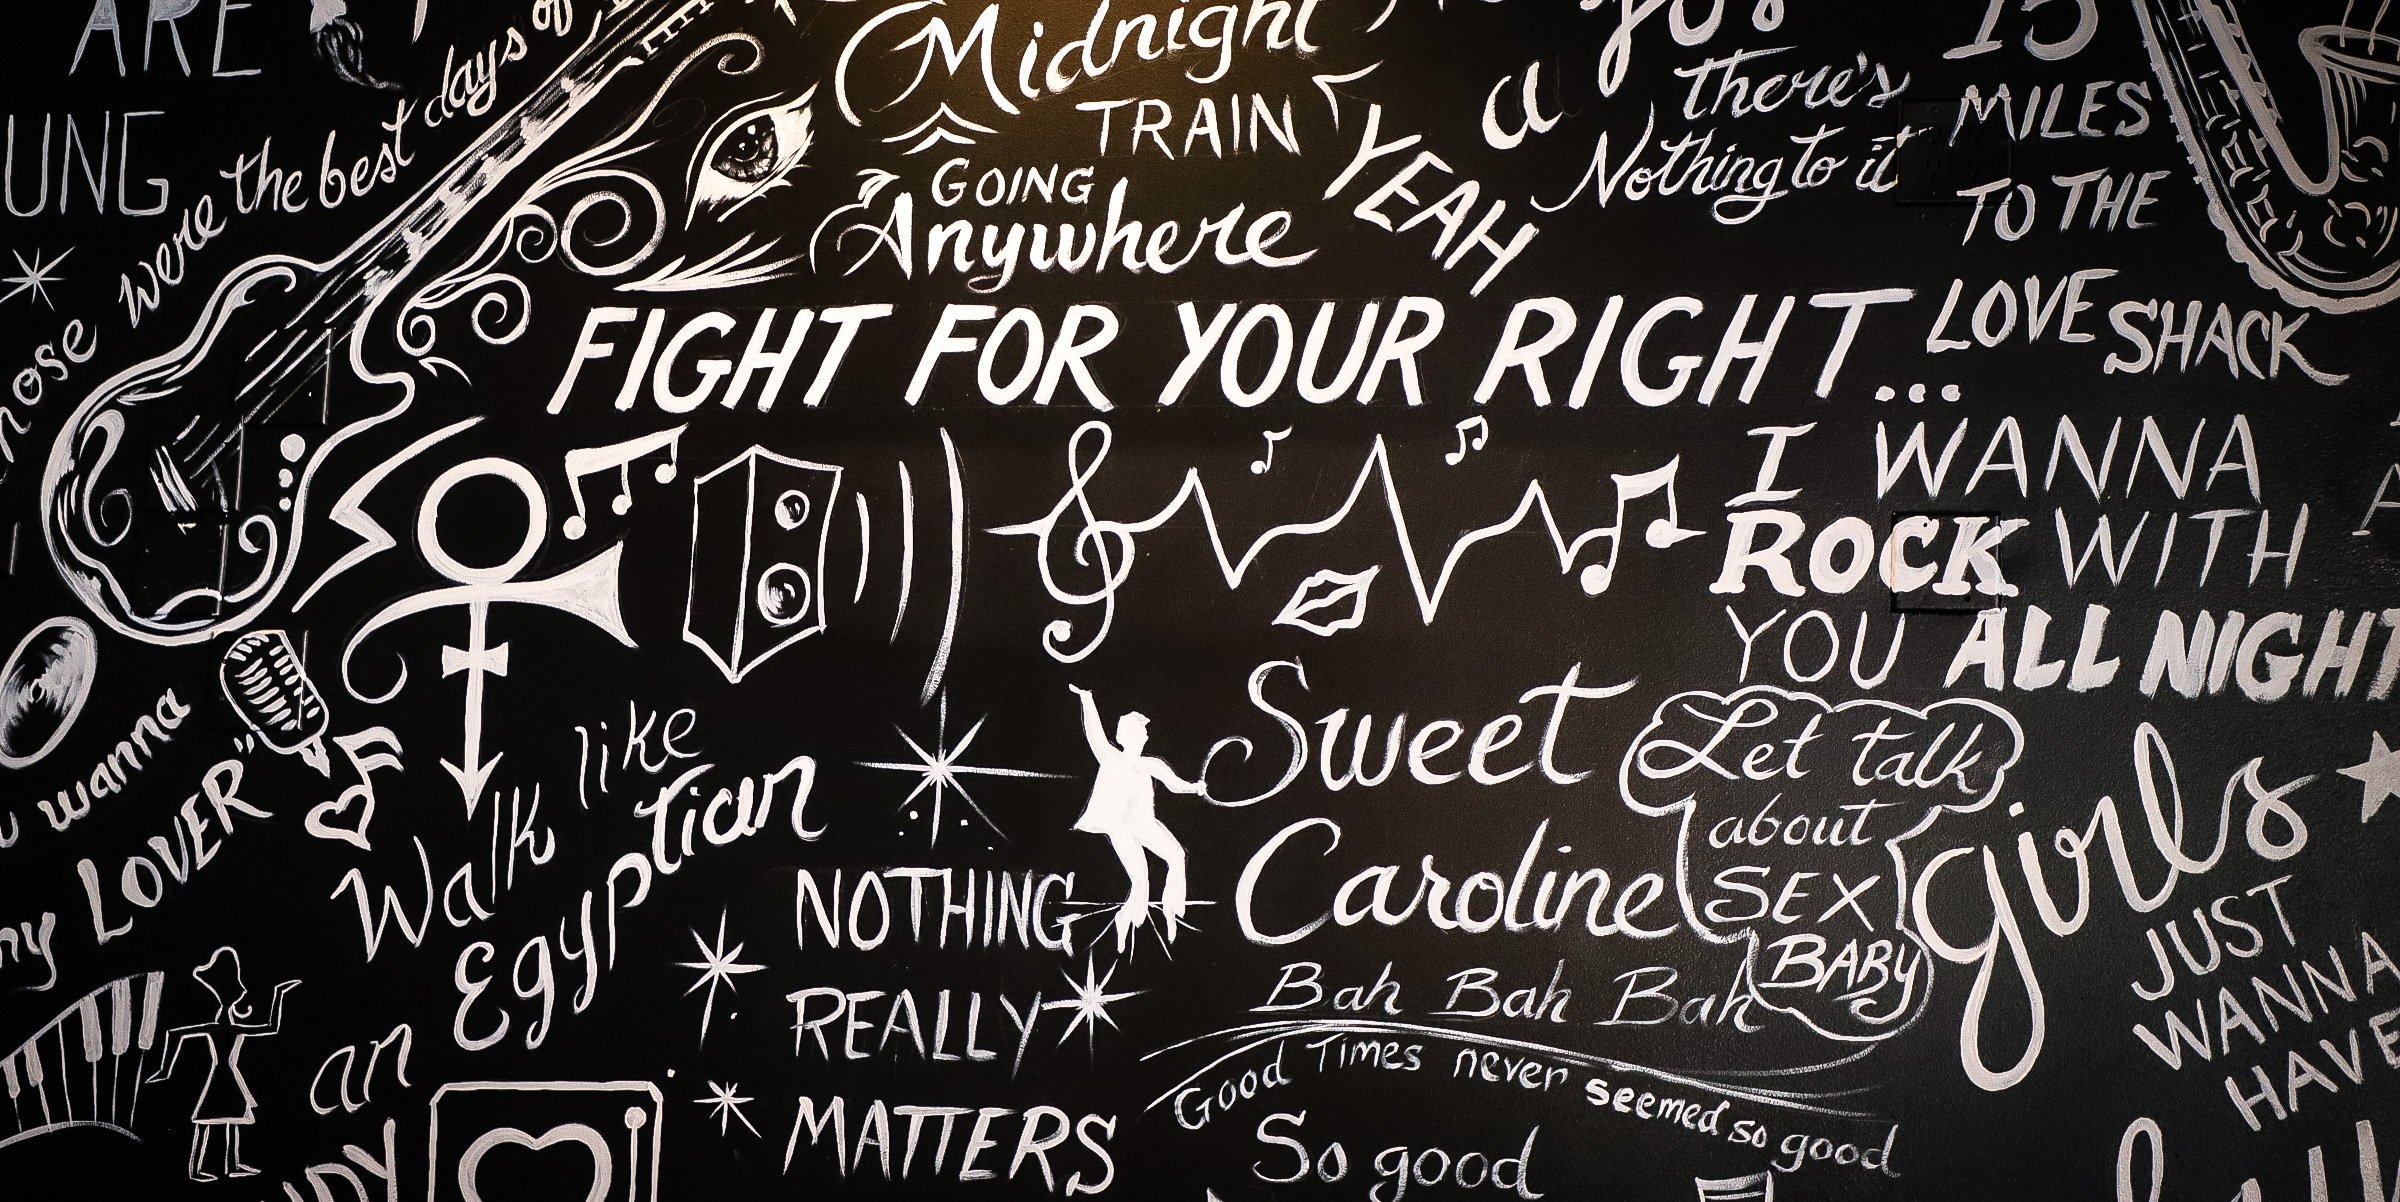 ARE
UNG
were the best days of
Midnight
TRAIN
GOING
Anywhere
YEAH
a
there's
Nothing to it
15
MILES
TO THE
LOVE SHACK
FIGHT FOR YOUR RIGHT...
I WANNA
ROCK WITH
YOU ALL NIGHT
wanna
my LOVER"
Walk like
an Egyptian
NOTHING
REALLY
MATTERS
Sweet
Caroline
Bah Bah Bah
Good Times never seemed so good
So good
Let talk
about
SEX
BABY
girls
JUST
WANNA
HAVE